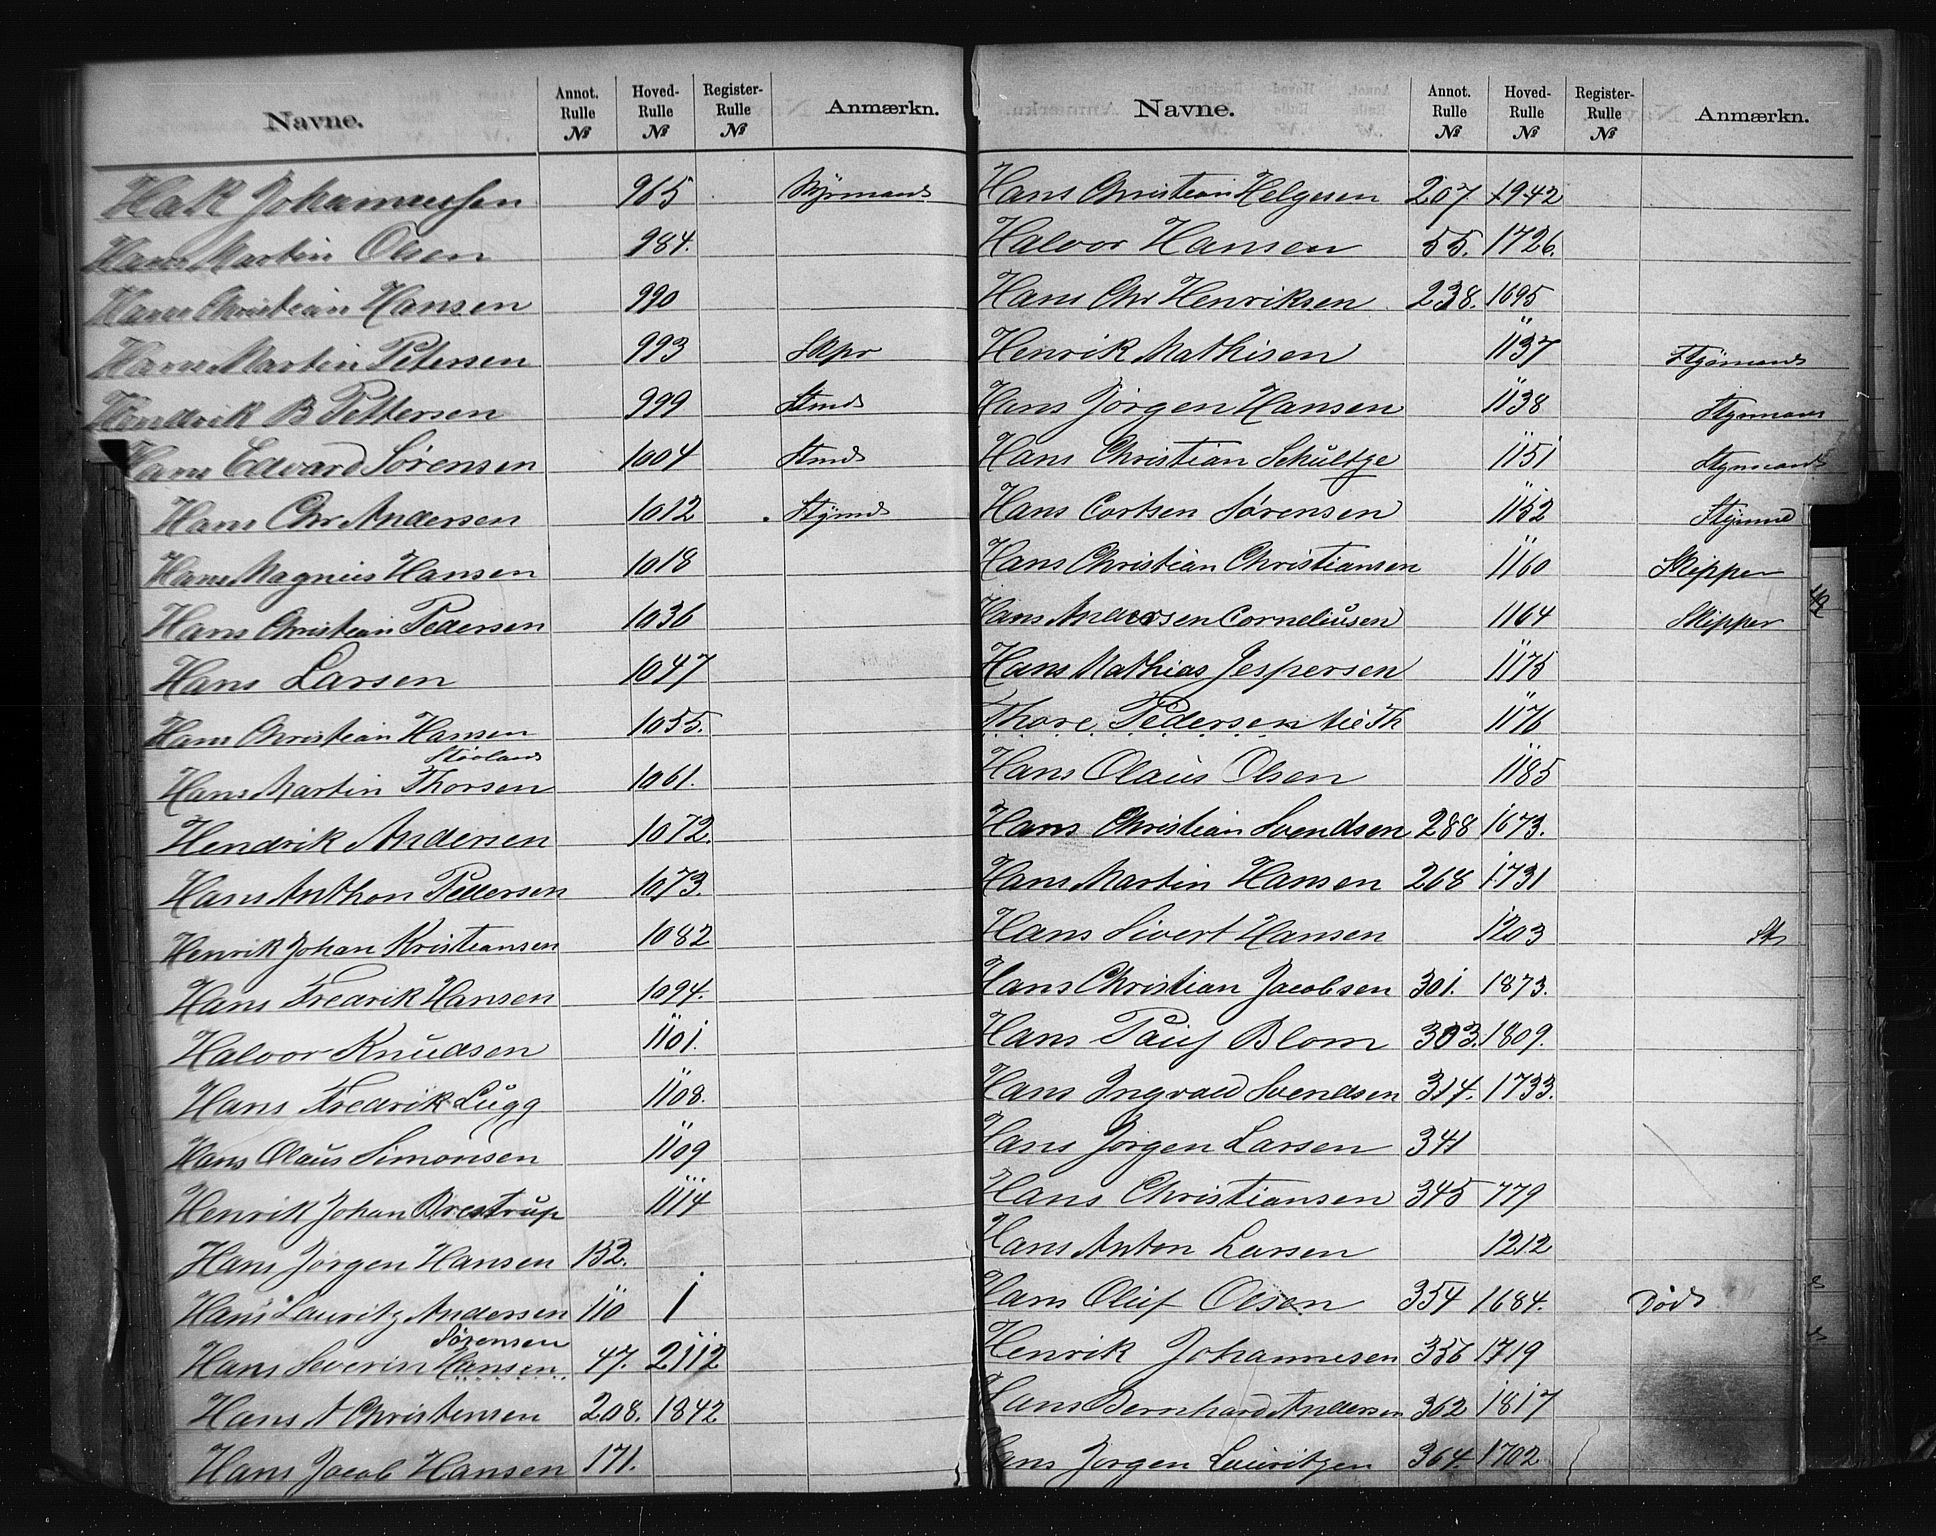 Navne. Annot. Rulle № Hoved-Rulle № Register-Rulle № Anmærkn.
Hak Johannessen 965 Styrmand
Hans Martin Olsen 984.
Hans Christian Hansen 990
Hans Martin Petersen 993 Skpr
Hendrik B Pettersen 999 Stmd
Hans Edvard Sørensen 1004 Stmd
Hans Chr Andersen 1012 Stymd
Hans Magnus Hansen 1018
Hans Christian Pedersen 1036
Hans Larsen 1047
Hans Christian Hansen 1055.
Støvland
Hans Martin Thorsen 1061.
Hendrik Andersen 1072.
Hans Anthon Pedersen 1073.
Henrik Johan Kristiansen 1082
Hans Fredrik Hansen 1094.
Halvor Knudsen 1101.
Hans Fredrik Lugg 1108.
Hans Olaus Simonsen 1109
Henrik Johan Brestrup 1114
Hans Jørgen Hansen 152.
Hans Lauritz Andersen 110 1
Sørensen
Hans Severin Hansen 47. 2112
Hans A Christensen 208. 1842
Hans Jacob Hansen 171.
Navne. Annot. Rulle № Hoved-Rulle № Register-Rulle № Anmærkn.
Hans Christian Helgesen 207. 1942
Halvor Hansen 55. 1726.
Hans Chr Henriksen 238. 1695
Henrik Mathisen 1137 Styrmand
Hans Jørgen Hansen 1138 Styrmand
Hans Christian Schultze 1151 Stymand
Hans Cortsen Sørensen 1152 Stymnd
Hans Christian Christiansen 1160 Skipper
Hans Andersen Corneliusen 1164 Skipper
Hans Mathias Jespersen 1175
Thore Pedersen 1176
Hans Olaus Olsen 1185
Hans Christian Svendsen 288 1673.
Hans Martin Hansen 268 1731
Hans Sivert Hansen 1203 St
Hans Christian Jacobsen 301. 1873.
Hans Blom 303. 1809.
Hans Ingvald Svendsen 314. 1733.
Hans Jørgen Larsen 341
Hans Christiansen 345 779
Hans Anton Larsen 1212
Hans Oluf Olsen 354 1684. Død
Henrik Johannesen 356 1719
Hans Bernhard Andersen 362 1817
Hans Jørgen Lauritzen 364. 1702